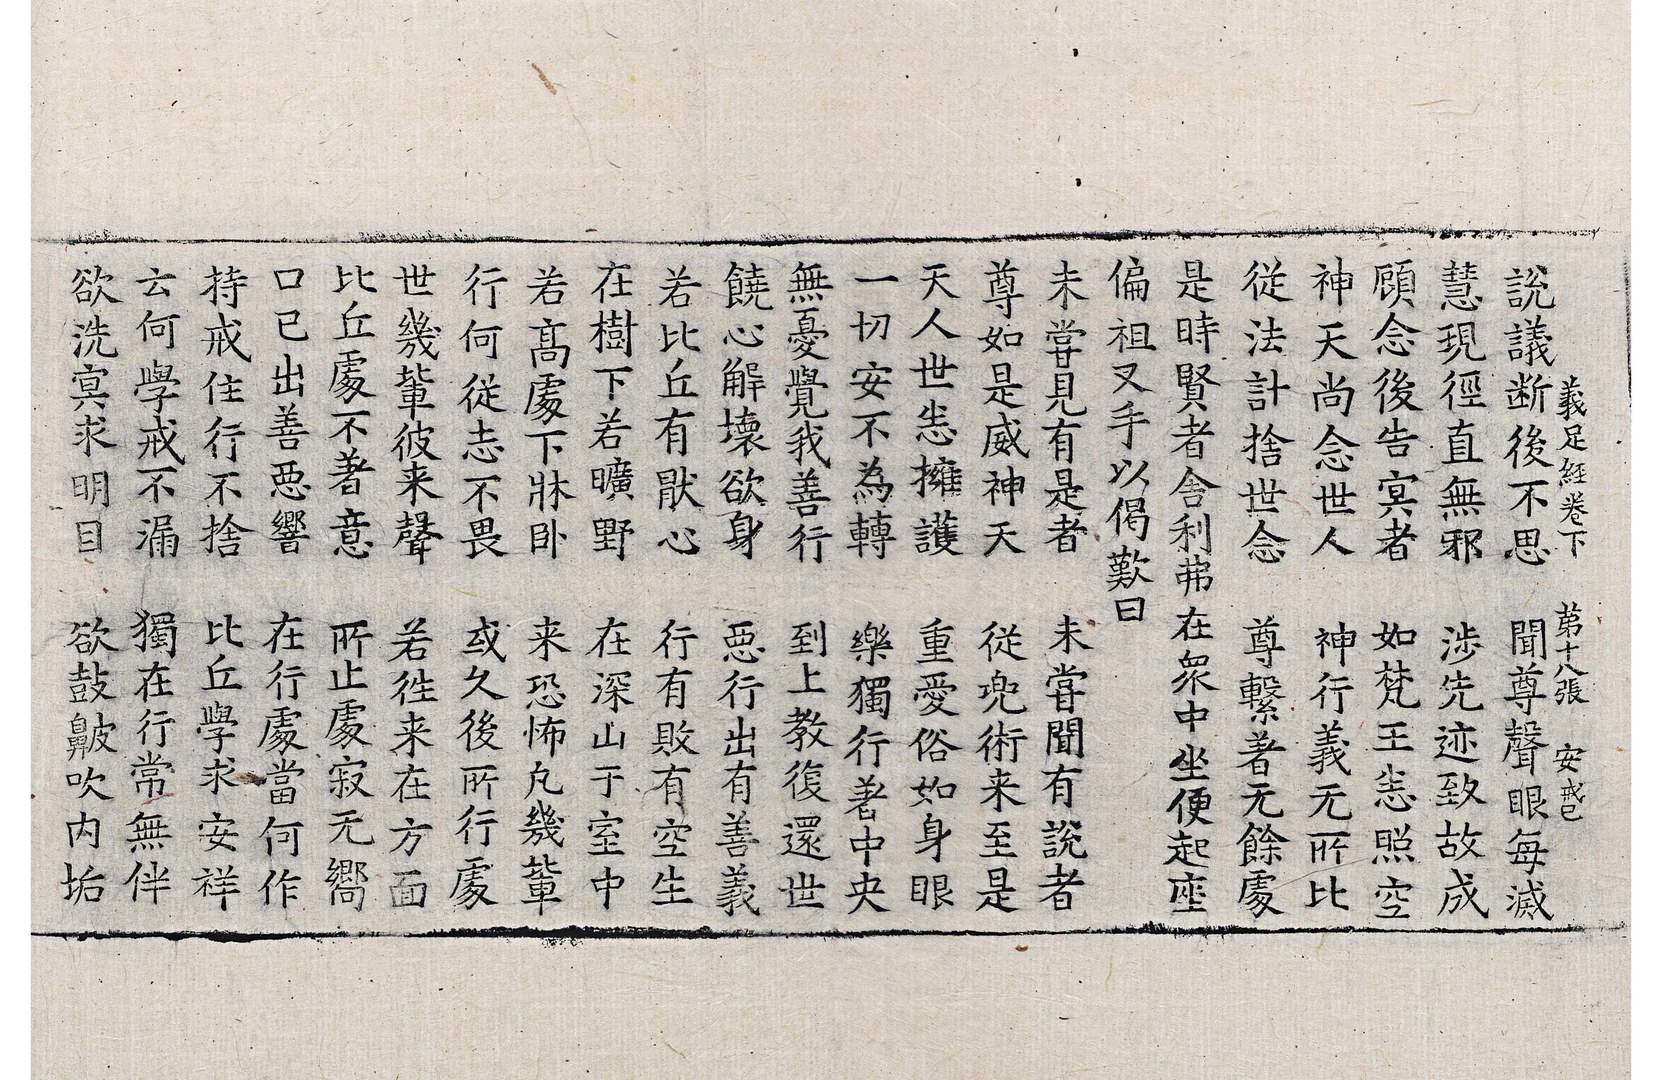 義足經卷下　第十八張　安
說議断後不思　聞尊聲眼每滅
慧現徑直無邪　涉先迹致故成
顧念後告冥者　如梵王恙照空
神天尚念世人　神行義无所比
從法計捨世念　尊繫著无餘處
是時賢者舎利弗在衆中坐便起座
偏袒叉手以偈歎曰
未嘗見有是者　未嘗聞有說者
尊如是威神天　従兜術来至是
天人世恙擁護　重愛俗如身眼
一切安不為轉　樂獨行著中央
無憂覺我善行　到上教復還世
饒心解壊欲身　惡行出有善義
若比丘有猒心　行有敗有空生
在樹下若曠野　在深山于室中
若髙處下牀卧　来恐怖凢幾軰
行何従志不畏　或久後所行處
世幾軰彼来聲　若往来在方面
比丘處不著意　所止處寂无嚮
口已出善惡響　在行處當何作
持戒住行不捨　比丘學求安祥
云何學戒不漏　獨在行常無伴
欲洗冥求明目　欲鼓鼻皮吹内垢